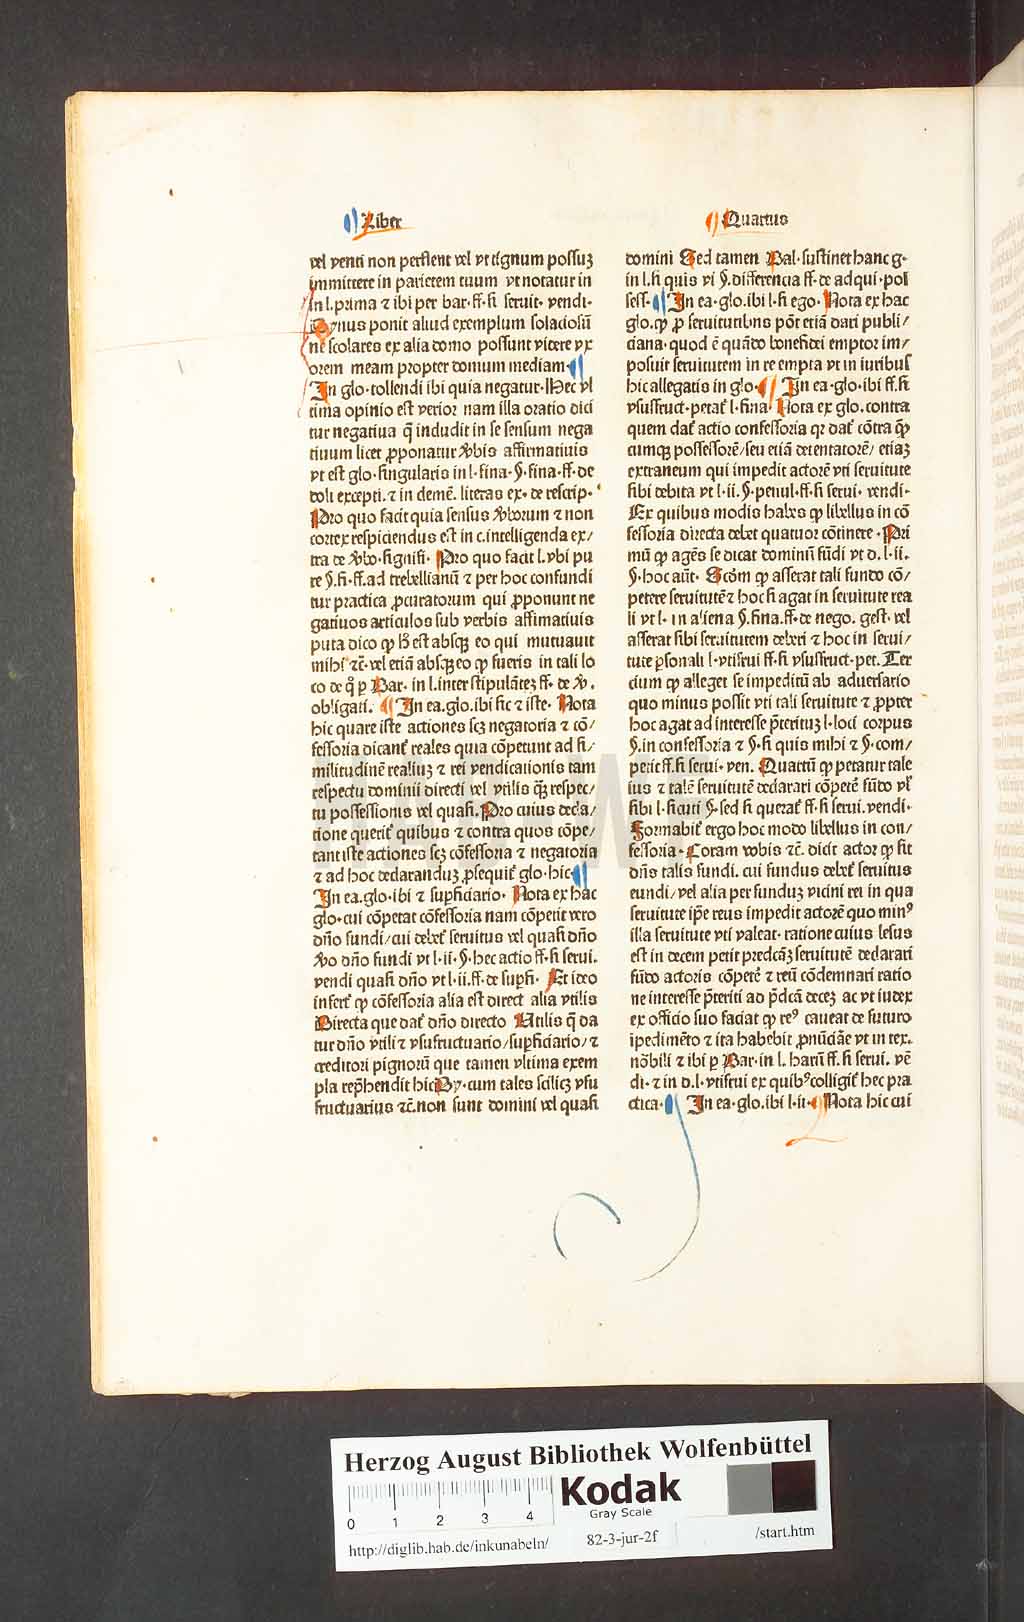 Liber
Quartus
vel venti non perflent vel vt tignum possuʒ
immittere in parietem tuum vt notatur in
in l. prima ⁊ ibi per bar. ff. si seruit. vendi.
nus ponit aliud exemplum solaciosū
ne scolares ex alia domo possunt videre vx
orem meam propter domum mediam.
In glo. tollendi ibi quia negatur. Hec vl
tima opinio est verior nam illa oratio dici
tur negatiua q̄ includit in se sensum nega
tiuum licet ꝓponatur ꝟbis affirmatiuis
vt est glo. singularis in l. fina. §. fina. ff. de
doli excepti. ⁊ in clemē. literas ex. de rescrip.
Pro quo facit quia sensus ꝟborum ⁊ non
cortex respiciendus est in c. intelligenda ex/
tra de ꝟbo. signifi. Pro quo facit l. vbi pu
re §. fi. ff. ad trebellianū ⁊ per hoc confundi
tur practica ꝓcuratorum qui ꝓponunt ne
gatiuos articulos sub verbis affimatiuis
puta dico ꝙ h̄ est absqꝫ eo qui mutuauit
mihi ⁊c̄. vel etiā absqꝫ eo ꝙ fueris in tali lo
co de q̊ ꝑ Bar. in l. inter stipulāteʒ ff. de ꝟ.
obligati. In ea. glo. ibi sic ⁊ iste. Nota
hic quare iste actiones scʒ negatoria ⁊ cō/
fessoria dicant᷑ reales quia cōpetunt ad si/
militudinē realiuʒ ⁊ rei vendicationis tam
respectu dominii directi vel vtilis q̄ʒ respec/
tu possessionis vel quasi. Pro cuius decla/
ratione querit᷑ quibus ⁊ contra quos cōpe/
tant iste actiones scʒ cōfessoria ⁊ negatoria
⁊ ad hoc declaranduʒ ꝓsequit᷑ glo. hic
In ea. glo. ibi ⁊ suꝑficiario. Nota ex hac
glo. cui cōpetat cōfessoria nam cōpetit vero
dn̄o fundi/cui debet᷑ seruitus vel quasi dn̄o
ꝟo dn̄o fundi vt l. ii. §. hec actio ff. si serui.
vendi quasi dn̄o vt l. ii. ff. de suꝑfi. Et ideo
infert᷑ ꝙ cōfessoria alia est direct alia vtilis
Directa que dat᷑ dn̄o directo Utilis q̄ da
tur dn̄o vtili ⁊ vsufructuario/suꝑficiario/⁊
creditori pignorū que tamen vltima exem
pla rep̄hendit hic By. cum tales scilicʒ vsu
fructuarius ⁊c̄. non sunt domini vel quasi
domini Sed tamen Bal. sustinet hanc g.
in l. si quis vi §. differencia ff. de adqui. pos
sess. In ea. glo. ibi l. si ego. Nota ex hac
glo. ꝙ ꝓ seruitutibus pōt etiā dari publi/
ciana. quod ē quādo bonefidei emptor im/
posuit seruitutem in re empta vt in iuribus
hic allegatis in glo. In ea. glo. ibi ff. si
vsusfruct. petat᷑ l. fina. Nota ex glo. contra
quem dat᷑ actio confessoria qr dat᷑ cōtra q̄
cumqꝫ possessorē/seu etiā detentatorē/ etiaʒ
extraneum qui impedit actorē vti seruitute
sibi debita vt l. ii. §. penul. ff. si serui. vendi.
Ex quibus modis habes ꝙ libellus in cō
fessoria directa debet quatuor cōtinere. Pri
mū ꝙ agēs se dicat dominū fūdi vt d. l. ii.
§. hoc aūt. Scōm ꝙ asserat tali fundo cō/
petere seruitutē ⁊ hoc si agat in seruitute rea
li vt l. in aliena §. fina. ff. de nego. gest. vel
asserat sibi seruitutem deberi ⁊ hoc in serui/
tute ꝑsonali l. vtisrui ff. si vsusfruct. pet. Ter
cium ꝙ alleget se impeditū ab aduersario
quo minus possit vti tali seruitute ⁊ ꝓpter
hoc agat ad interesse p̄teritūʒ l. loci corpus
§. in confessoria ⁊ §. si quis mihi ⁊ §. com/
petit ff. si serui. ven. Quartū ꝙ petatur tale
ius ⁊ talē seruitutē declarari cōpetē fūdo vl᷑
sibi l. sicuti §. sed si querat᷑ ff. si serui. vendi.
Formabit᷑ ergo hoc modo libellus in con/
fessoria. Coram vobis ⁊c̄. dicit actor ꝙ sit
dn̄s talis fundi. cui fundus debet᷑ seruitus
eundi/ vel alia per funduʒ vicini rei in qua
seruitute ip̄e reus impedit actorē quo minꝰ
illa seruitute vti valeat. ratione cuius lesus
est in decem petit predcāʒ seruitutē declarari
fūdo actoris cōpetē ⁊ reū cōdemnari ratio
ne interesse p̄teriti ad p̄dcā deceʒ ac vt iudex
ex officio suo faciat ꝙ reꝰ caueat de futuro
īpedimēto ⁊ ita habebit᷑ ꝓnūciāe vt in tex.
nōbili ⁊ ibi ꝑ Bar. in l. harū ff. si serui. vē
di. ⁊ in d. l. vtisrui ex quibꝰ colligit᷑ hec pra
ctica. In ea. glo. ibi l. ii. Nota hic cui
HAB-WF
Herzog August Bibliothek Wolfenbüttel
0 1 2 3 4
Kodak
Gray Scale
http://diglib.hab.de/inkunabeln/ 82-3-jur-2f /start.htm